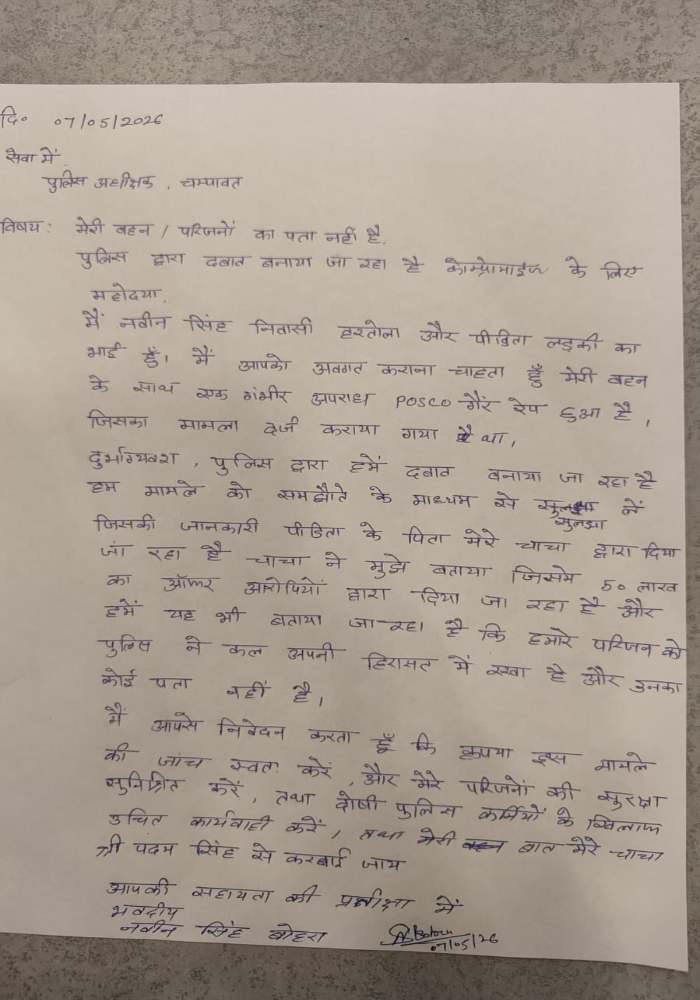 दि० 07/05/2026
सेवा में
पुलिस अधीक्षक, चम्पावत
विषय: मेरी बहन / परिजनों का पता नहीं है.
पुलिस द्वारा दबाव बनाया जा रहा है कोम्प्रोमाइज के लिए
महोदया,
मैं नवीन सिंह निवासी हरतोला और पीडिता लड़की का
भाई हुँ। मैं आपको अवगत कराना चाहता हुँ मेरी बहन
के साथ एक गंभीर अपराध POSCO गैंर रेप हुआ है,
जिसका मामला दर्ज कराया गया है था,
दुर्भाग्यवश, पुलिस द्वारा हमें दबाव बनाया जा रहा है
हम मामले को समझौते के माध्यम से सुलझा लें
सुलझा
जिसकी जानकारी पीडिता के पिता मेरे चाचा द्वारा दिया
जा रहा है चाचा ने मुझे बताया जिसमे 50 लाख
का ऑफर आरोपियों द्वारा दिया जा रहा है और
हमें यह भी बताया जा रहा है कि हमारे परिजन को
पुलिस ने कल अपनी हिरासत में रखा है और उनका
कोई पता नहीं है,
मैं आपसे निवेदन करता हुँ कि कृपया इस मामले
की जांच स्वतः करें, और मेरे परिजनों की सुरक्षा
सुनिश्चित करें, तथा दोषी पुलिस कर्मियों के खिलाफ
उचित कार्यवाही करें, तथा मेरी बात मेरे चाचा
श्री पदम सिंह से करबाई जाय
आपकी सहायता की प्रतीक्षा में
भवदीय
नवीन सिंह बोहरा
07/05/26